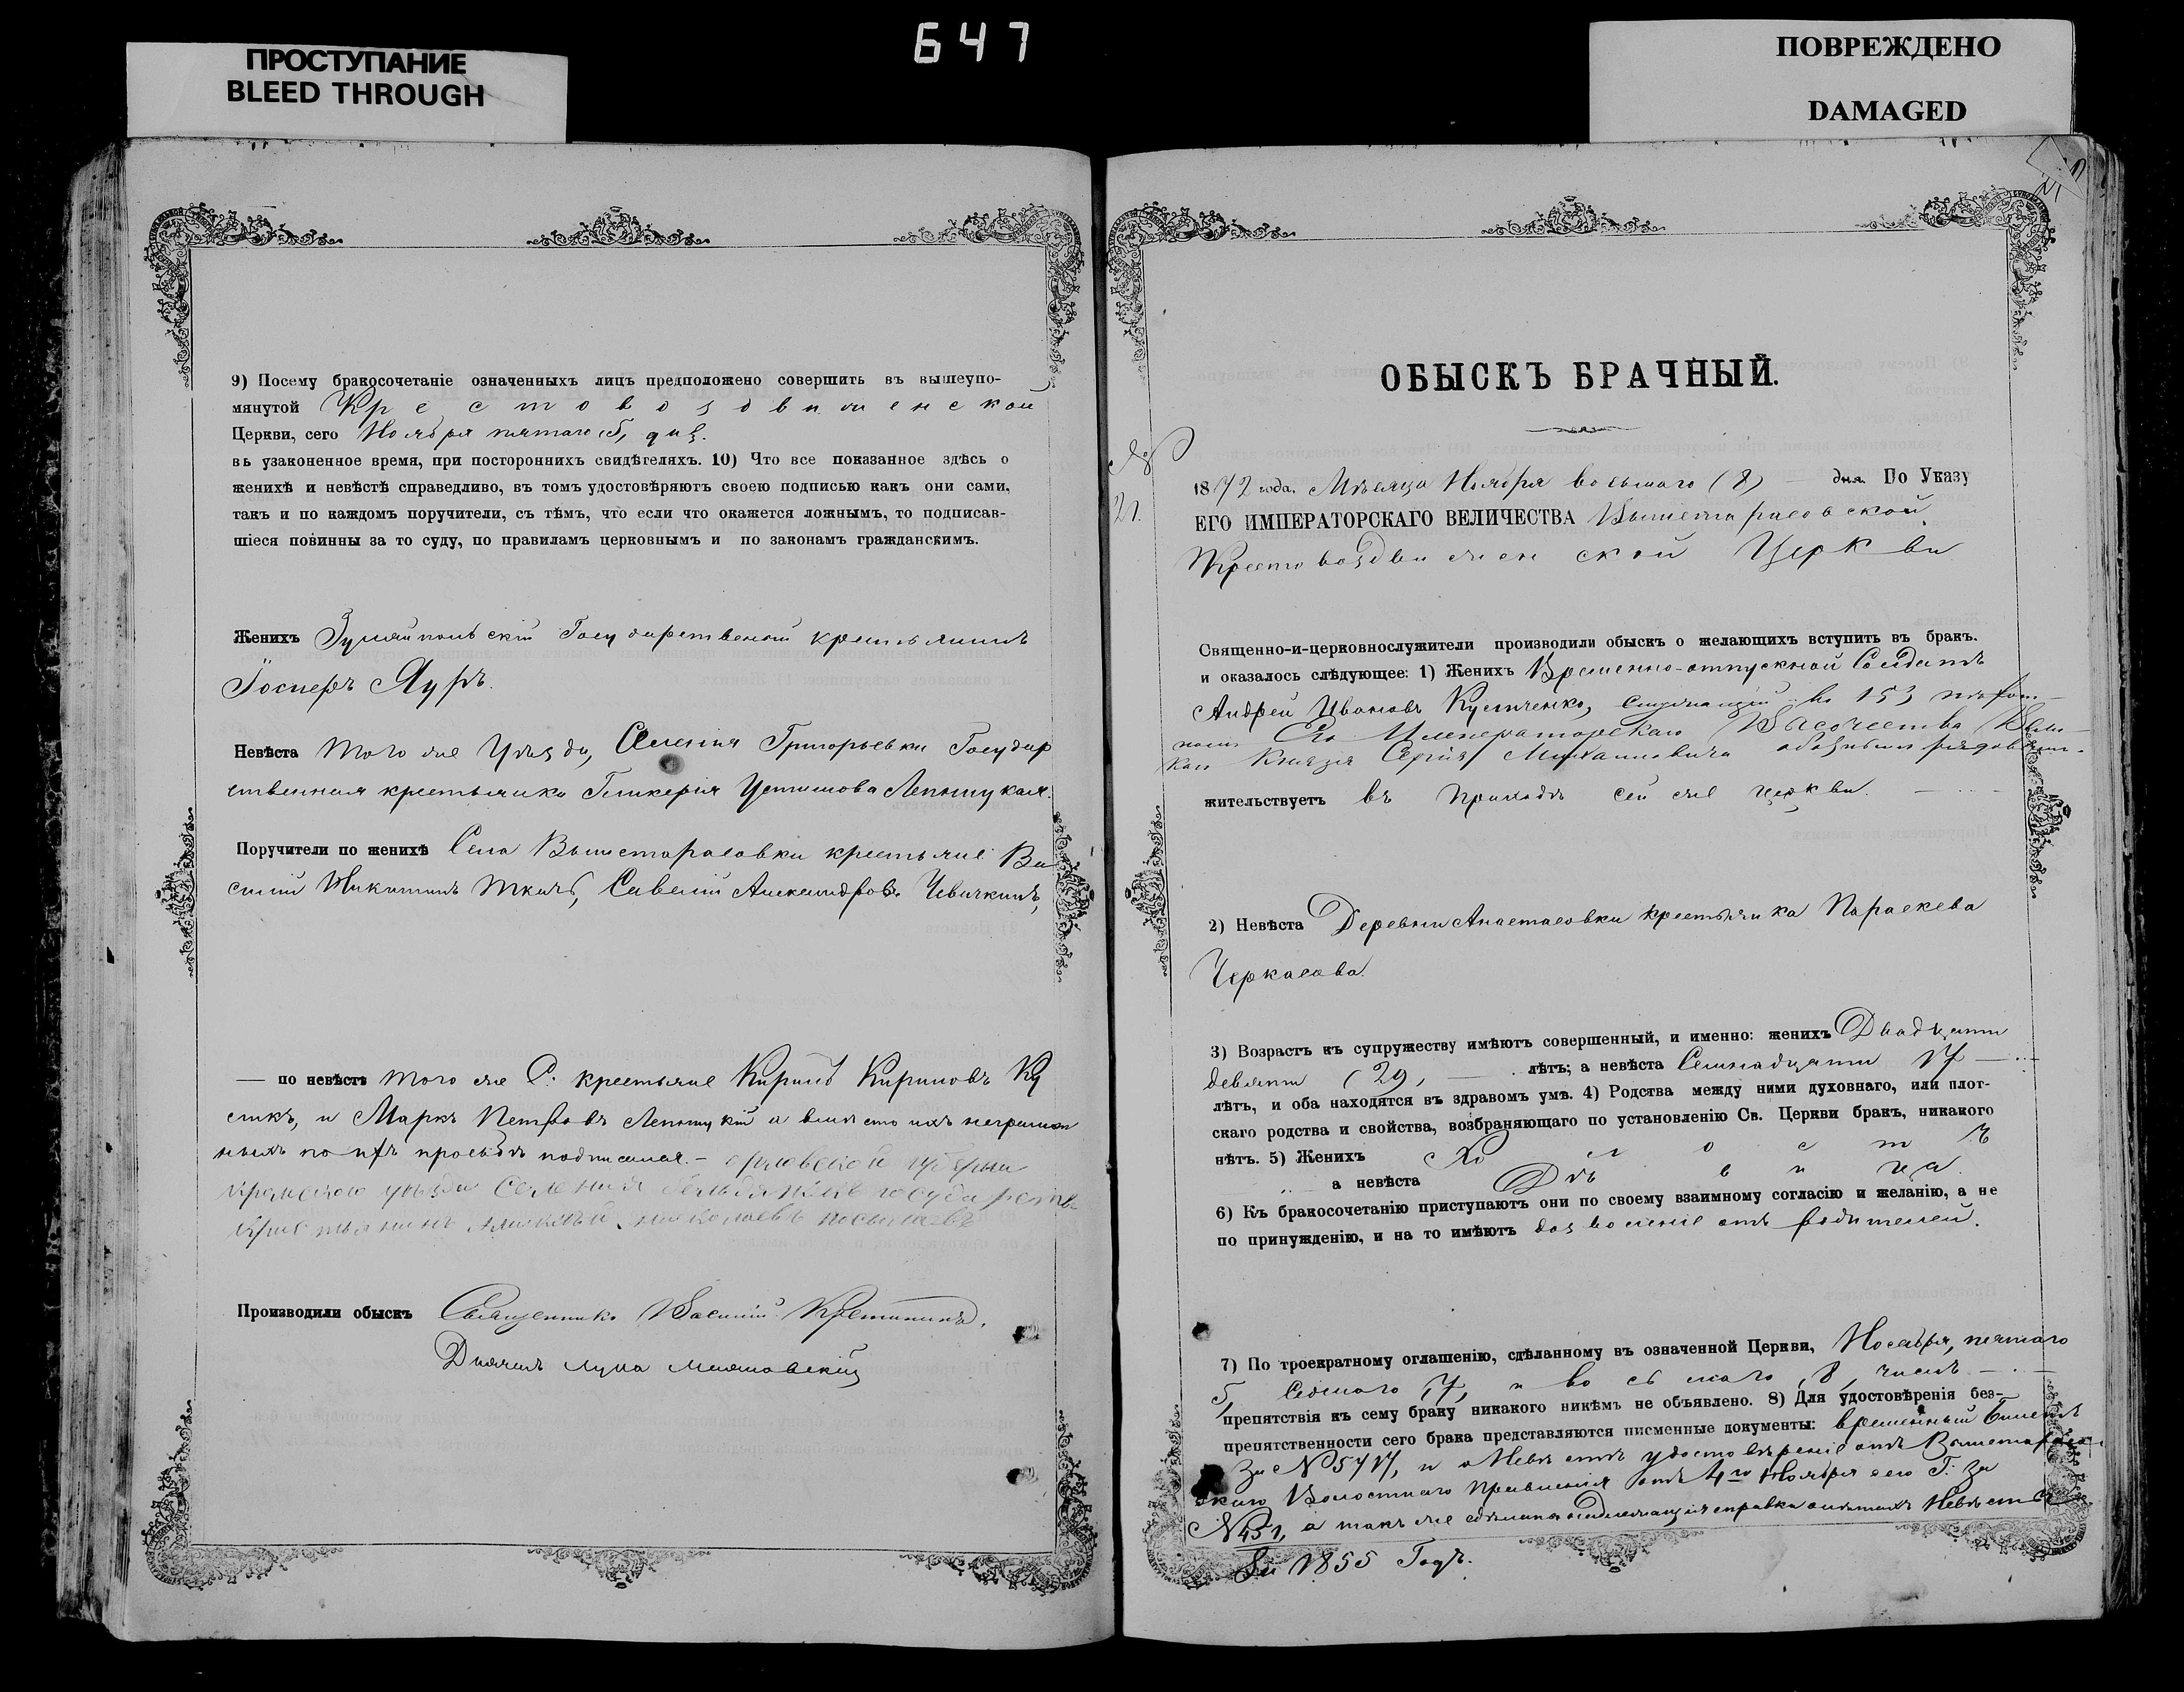 ПРОСТУПАНИЕ
BLEED THROUGH
647
ПОВРЕЖДЕНО
DAMAGED
9) Посему бракосочетаніе означенныхъ лицъ предположено совершить въ вышеупо-
мянутой Крестовоздвиженской
Церкви, сего Ноября пятаго 5, дня.
въ узаконенное время, при постороннихъ свидѣтеляхъ. 10) Что все показанное здѣсь о
женихѣ и невѣстѣ справедливо, въ томъ удостовѣряютъ своею подписью какъ они сами,
такъ и по каждомъ поручители, съ тѣмъ, что если что окажется ложнымъ, то подписав-
шіеся повинны за то суду, по правиламъ церковнымъ и по законамъ гражданскимъ.
Женихъ Государственный крестьянинъ
Яуръ.
Невѣста того же Уѣзда, Селенія Григорьевки Государ
ственная крестьянка Гликерія Устимова
Поручители по женихѣ Села Вышетарасовки крестьяне Ва
силій Никитинъ Ткачъ, Савелій Александровъ Чевичкинъ,
— по невѣстѣ того же С: крестьяне Кирилъ Кириловъ Ку
сикъ, и Маркъ Петровъ а вмѣсто ихъ неграмот
ныхъ по ихъ прозьбѣ подписался. – орловской губерни
уѣзда Селения государстве
кристьянинъ николаевъ
Производили обыскъ Священникъ Василій Кретининъ.
Дьячекъ Лука
№
21.
ОБЫСКЪ БРАЧНЫЙ.
1872 года. Мѣсяца Ноября восьмаго (8) — дня. По Указу
ЕГО ИМПЕРАТОРСКАГО ВЕЛИЧЕСТВА Вышетарасовской
Крестовоздвиженской Церкви
Священно-и-церковнослужители производили обыскъ о желающихъ вступить въ бракъ.
и оказалось слѣдующее: 1) Женихъ Временно-отпускной Солдатъ
Андрей Ивановъ Кустченко, служащій въ 153 пѣхот-
номъ Его Императорскаго Высочества Вели-
каго Князя Сергія Михаиловича рядовымъ.
жительствуетъ въ приходѣ сей же церкви.
2) Невѣста Деревни Анастасовки крестьянка Параскева
Черкасова.
3) Возрастъ къ супружеству имѣютъ совершенный, и именно: женихъ Двадцати
девяти (29, — лѣтъ; а невѣста Семнадцати 17 —
лѣтъ, и оба находятся въ здравомъ умѣ. 4) Родства между ними духовнаго, или плот-
скаго родства и свойства, возбраняющаго по установленію Св. Церкви бракъ, никакого
нѣтъ. 5) Женихъ Холостъ
„ а невѣста Дѣвица.
6) Къ бракосочетанію приступаютъ они по своему взаимному согласію и желанію, а не
по принужденію, и на то имѣютъ дозволеніе отъ родителей.
7) По троекратному оглашенію, сдѣланному въ означенной Церкви, Ноября, пятаго
5, седмаго 7, и восьмаго 8, числъ —
препятствія къ сему браку никакого никѣмъ не объявлено. 8) Для удостовѣренія без-
препятственности сего брака представляются писменные документы: временный билетъ
За № 5717, и о Невѣстѣ удостовѣреніе отъ Вышетарасов-
скаго Волостнаго Правленія отъ 4го Ноября сего Г. За
№ 451, а такъ же сдѣлана надлежащая справка о лѣтахъ Невѣсты
За 1855 Годъ.